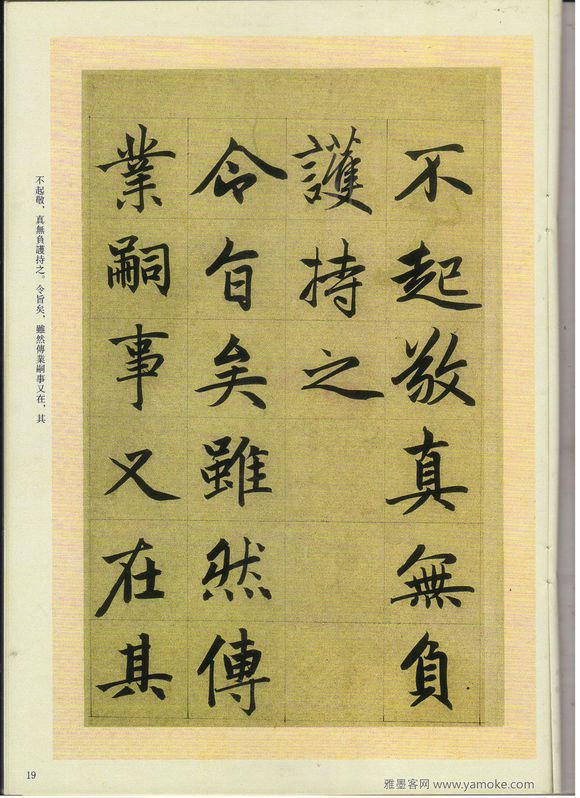 不起敬真無負
護持之
令旨矣雖然傳
業嗣事又在其
不起敬，真無負護持之。令旨矣，雖然傳業嗣事又在，其
19
雅墨客网 www.yamoke.com